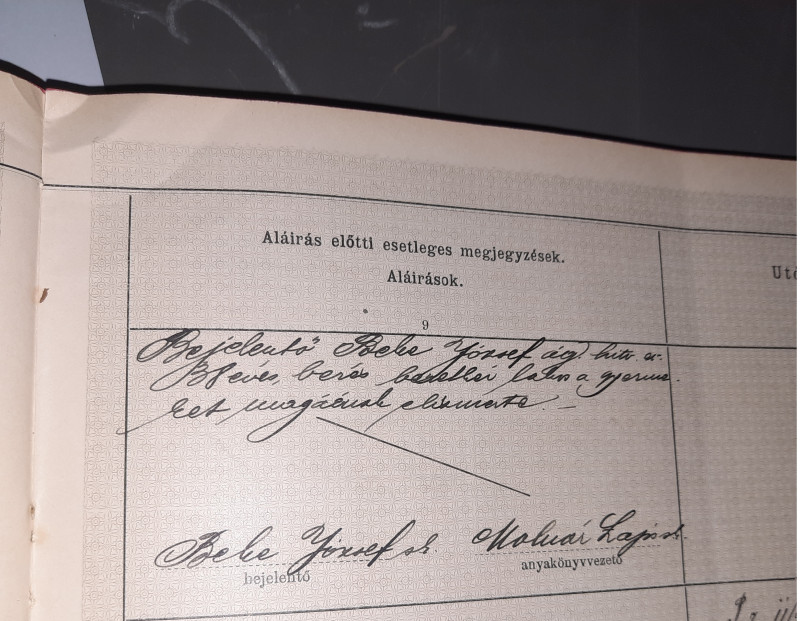 Aláirás előtti esetleges megjegyzések.
Aláirások.
9
Bejelentő Beke József ág. hitv. ev.
éves, berés lakos a gyerme-
ket magáénak elismerte. —
Beke József sk. Molnár Lajos sk.
bejelentő anyakönyvvezető
Utó